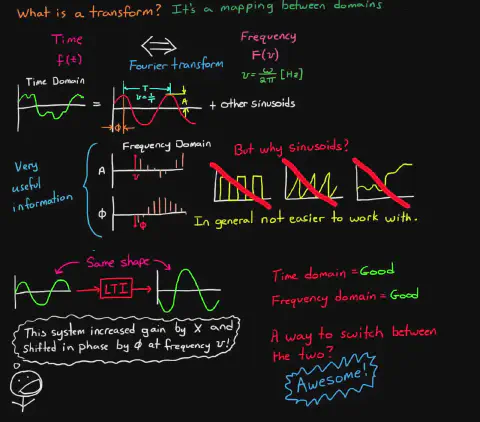 What is a transform? It's a mapping between domains
Time ⟺ Frequency
f(t) F(ν)
Fourier transform ν = ω/2π [Hz]
Time Domain
T
ν = 1/T
A
= + other sinusoids
Φ
Very
useful
information
Frequency Domain
A
ν
Φ
Φ
But why sinusoids?
In general not easier to work with.
Same shape
LTI
This system increased gain by X and
shifted in phase by Φ at frequency ν!
Time domain = Good
Frequency domain = Good
A way to switch between
the two?
Awesome!